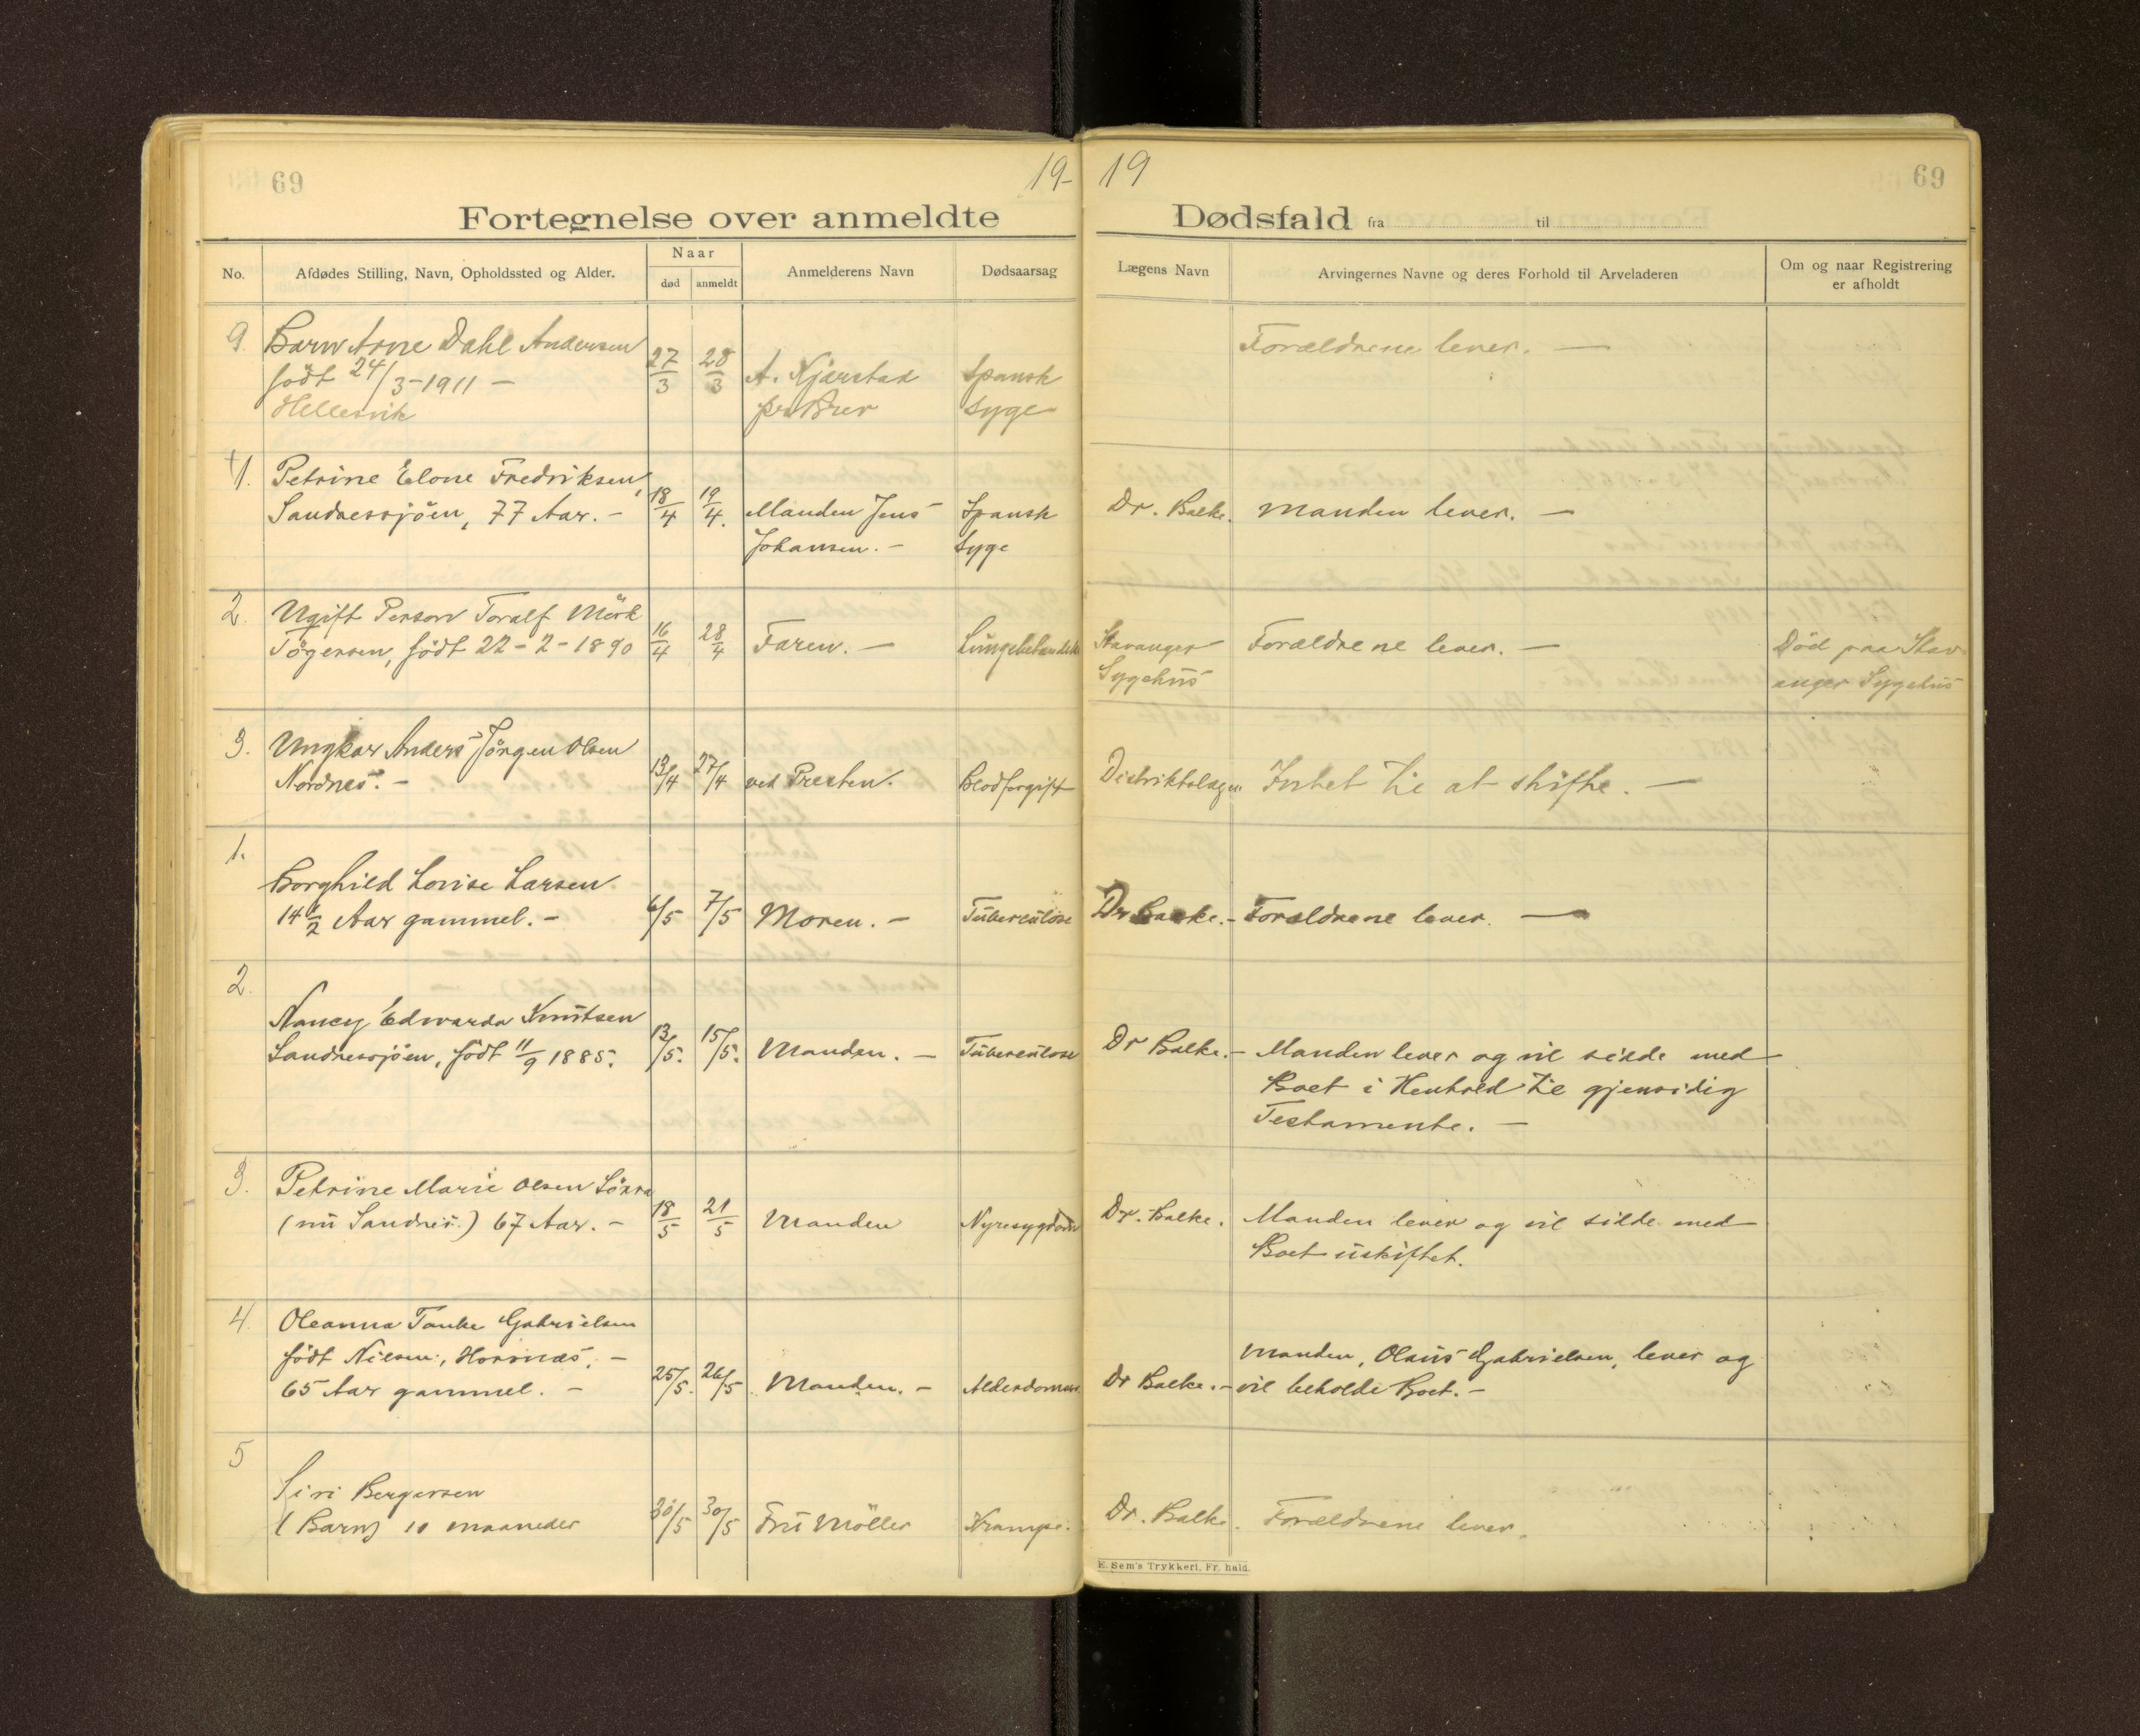 69
19-
19
69
Fortegnelse over anmeldte
Dødsfald fra til
No.
Afdødes Stilling, Navn, Opholdssted og Alder.
Naar
død
anmeldt
Anmelderens Navn
Dødsaarsag
Lægens Navn
Arvingernes Navne og deres Forhold til Arveladeren
Om og naar Registrering
er afholdt
9. Barn Arne Dahl Andersen
født 24/3-1911 -
Hellesvik
27/3 28/3
A. Kjærstad
pr. Brev
Spansk
Syge
Forældrene lever. -
1. Petrine Elone Fredriksen,
Sandnessjøen, 77 Aar. -
18/4 19/4.
Manden Jens
Johansen. -
Spansk
Syge
Dr. Balke.
Manden lever. -
2. Ugift Person Toralf Mörk
Tögersen, født 22-2-1890
16/4 28/4
Faren. -
Lungebetændelse
Stavanger
Sygehus
Forældrene lever. -
Död paa Stav
anger Sygehus
3. Ungkar Anders Jörgen Olsen
Nordnes. -
13/4 27/4
ved Presten.
Blodforgift
Distriktslægen
Intet til at skifte. -
1.
Borghild Lovise Larsen
14 1/2 Aar gammel. -
6/5 7/5
Moren. -
Tuberculose
Dr Balke. -
Forældrene lever. -
2.
Nancy Edwarda Knutsen
Sandnessjøen, født 11/9 1885.
13/5. 15/5.
Manden. -
Tuberculose
Dr Balke. -
Manden lever og vil sidde med
Boet i Henhold til gjensidig
Testamente. -
3. Petrine Marie Olsen
(nu Sandnes.) 67 Aar. -
18/5 21/5
Manden
Nyresygdom
Dr. Balke.
Manden lever og vil sidde med
Boet uskiftet.
4. Oleanna Tanke Gabrielsen
født Nilsen, Hornnæs, -
65 Aar gammel. -
25/5. 26/5
Manden. -
Alderdomms
Dr Balke. -
Manden, Olaus Gabrielsen, lever og
vil beholde Boet. -
5
Siri Bergersen
(Barn) 10 maaneder
30/5 30/5
Fru Möller
Krampe.
Dr. Balke.
Forældrene lever.
E. Sem's Trykkeri, Fr. hald.